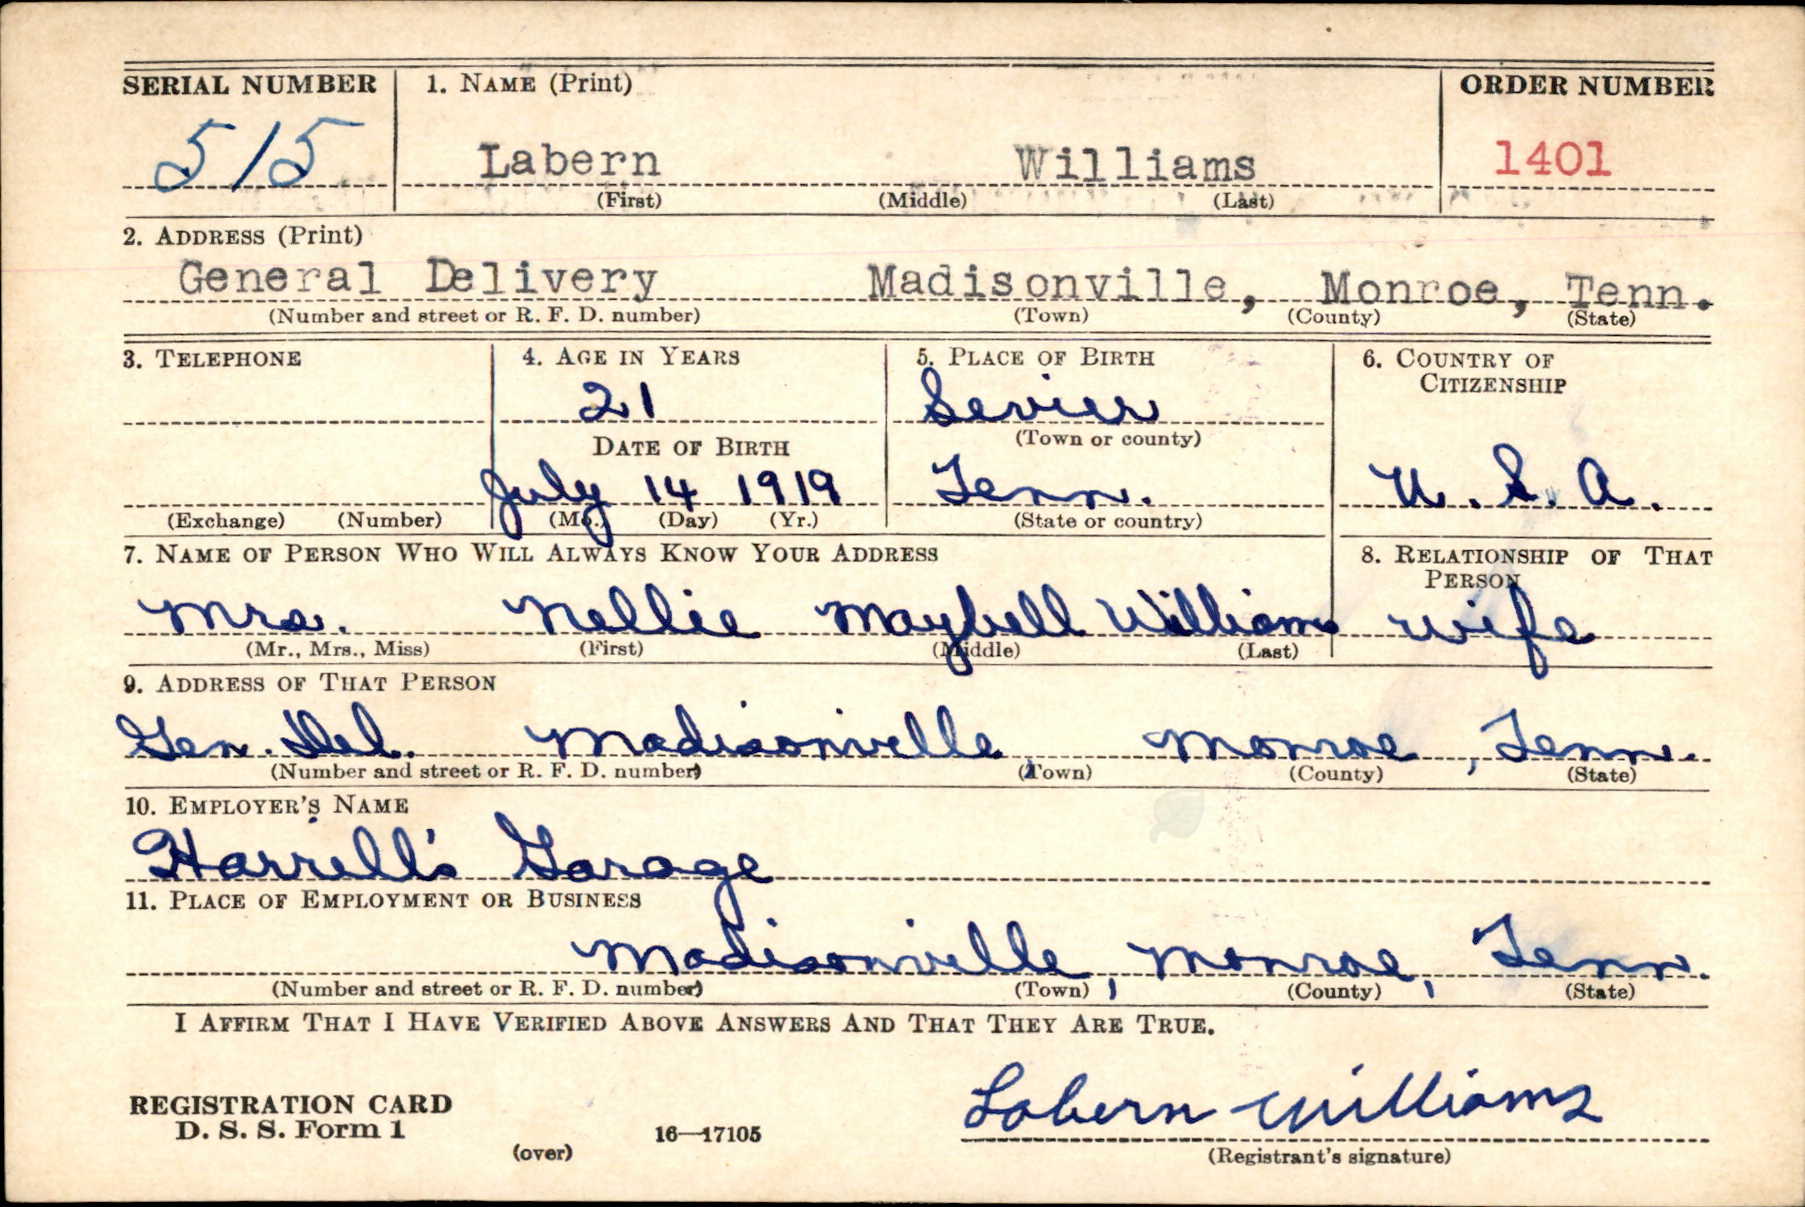 SERIAL NUMBER 1. NAME (Print) ORDER NUMBER
515 Labern Williams 1401
(First) (Middle) (Last)
2. ADDRESS (Print)
General Delivery Madisonville, Monroe, Tenn.
(Number and street or R. F. D. number) (Town) (County) (State)
3. TELEPHONE 4. AGE IN YEARS 5. PLACE OF BIRTH 6. COUNTRY OF
CITIZENSHIP
21 Sevier
DATE OF BIRTH (Town or county)
July 14 1919 Tenn. U. S. A.
(Exchange) (Number) (Mo.) (Day) (Yr.) (State or country)
7. NAME OF PERSON WHO WILL ALWAYS KNOW YOUR ADDRESS 8. RELATIONSHIP OF THAT
PERSON
Mrs. Nellie Maybell Williams wife
(Mr., Mrs., Miss) (First) (Middle) (Last)
9. ADDRESS OF THAT PERSON
Gen. Del. Madisonville, Monroe, Tenn.
(Number and street or R. F. D. number) (Town) (County) (State)
10. EMPLOYER'S NAME
Harrell's Garage
11. PLACE OF EMPLOYMENT OR BUSINESS
Madisonville, Monroe, Tenn.
(Number and street or R. F. D. number) (Town) (County) (State)
I AFFIRM THAT I HAVE VERIFIED ABOVE ANSWERS AND THAT THEY ARE TRUE.
REGISTRATION CARD Labern Williams
D. S. S. Form 1
(over) 16—17105 (Registrant's signature)